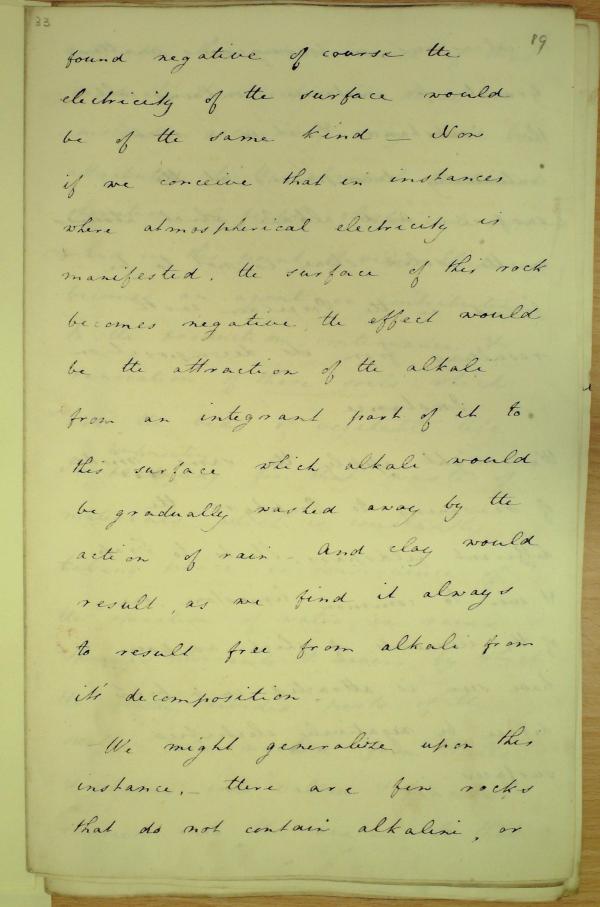 33
19
found negative of course the
electricity of the surface would
be of the same kind — Now
if we conceive that in instances
where atmospherical electricity is
manifested, the surface of this rock
becomes negative, the effect would
be the attraction of the alkali
from an integrant part of it to
this surface which alkali would
be gradually washed away by the
action of rain – And clay would
result, as we find it always
to result free from alkali from
it's decomposition.
We might generalize upon this
instance, – there are few rocks
that do not contain alkaline, or